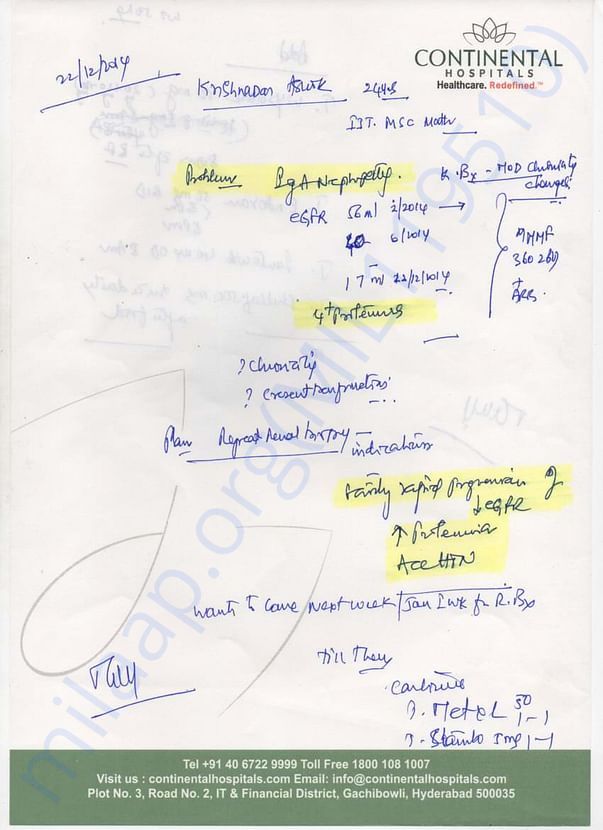 CONTINENTAL
HOSPITALS
Healthcare. Redefined.™
22/12/2014
Krishnadas Ashok 24yrs
IIT. MSC Maths
Problem IgA Nephropathy.
K.Bx - MOD Chronicity changes
eGFR 56ml 2/2014 →
40 6/2014
17 ml 22/12/2014
MMF
360 2
+
ARB.
4+ Proteinuria
? Chronicity
? Crescent
Plan Repeat Renal biopsy - indications
Fairly rapid progression of
↓eGFR
↑ Proteinuria
Acc HTN
wants to come next week / Jan I wk for R.Bx
till then
continue
T. Metol 50 1-1
T. Stamlo 5mg 1-1
milaap.org(MIL119510)
Tel +91 40 6722 9999 Toll Free 1800 108 1007
Visit us : continentalhospitals.com Email: info@continentalhospitals.com
Plot No. 3, Road No. 2, IT & Financial District, Gachibowli, Hyderabad 500035